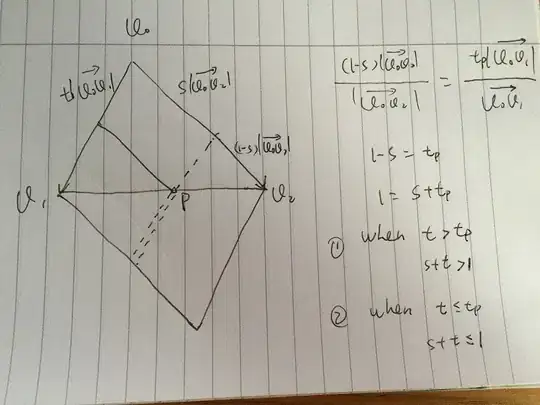 v₀
t|v₀v₁|
s|v₀v₂|
(1-s)|v₀v₂|
v₁
P
v₂
(1-s)|v₀v₂| / |v₀v₂| = tₚ|v₀v₁| / v₀v₁
1-s = tₚ
1 = s+tₚ
① when t > tₚ
s+t > 1
② when t ≤ tₚ
s+t ≤ 1